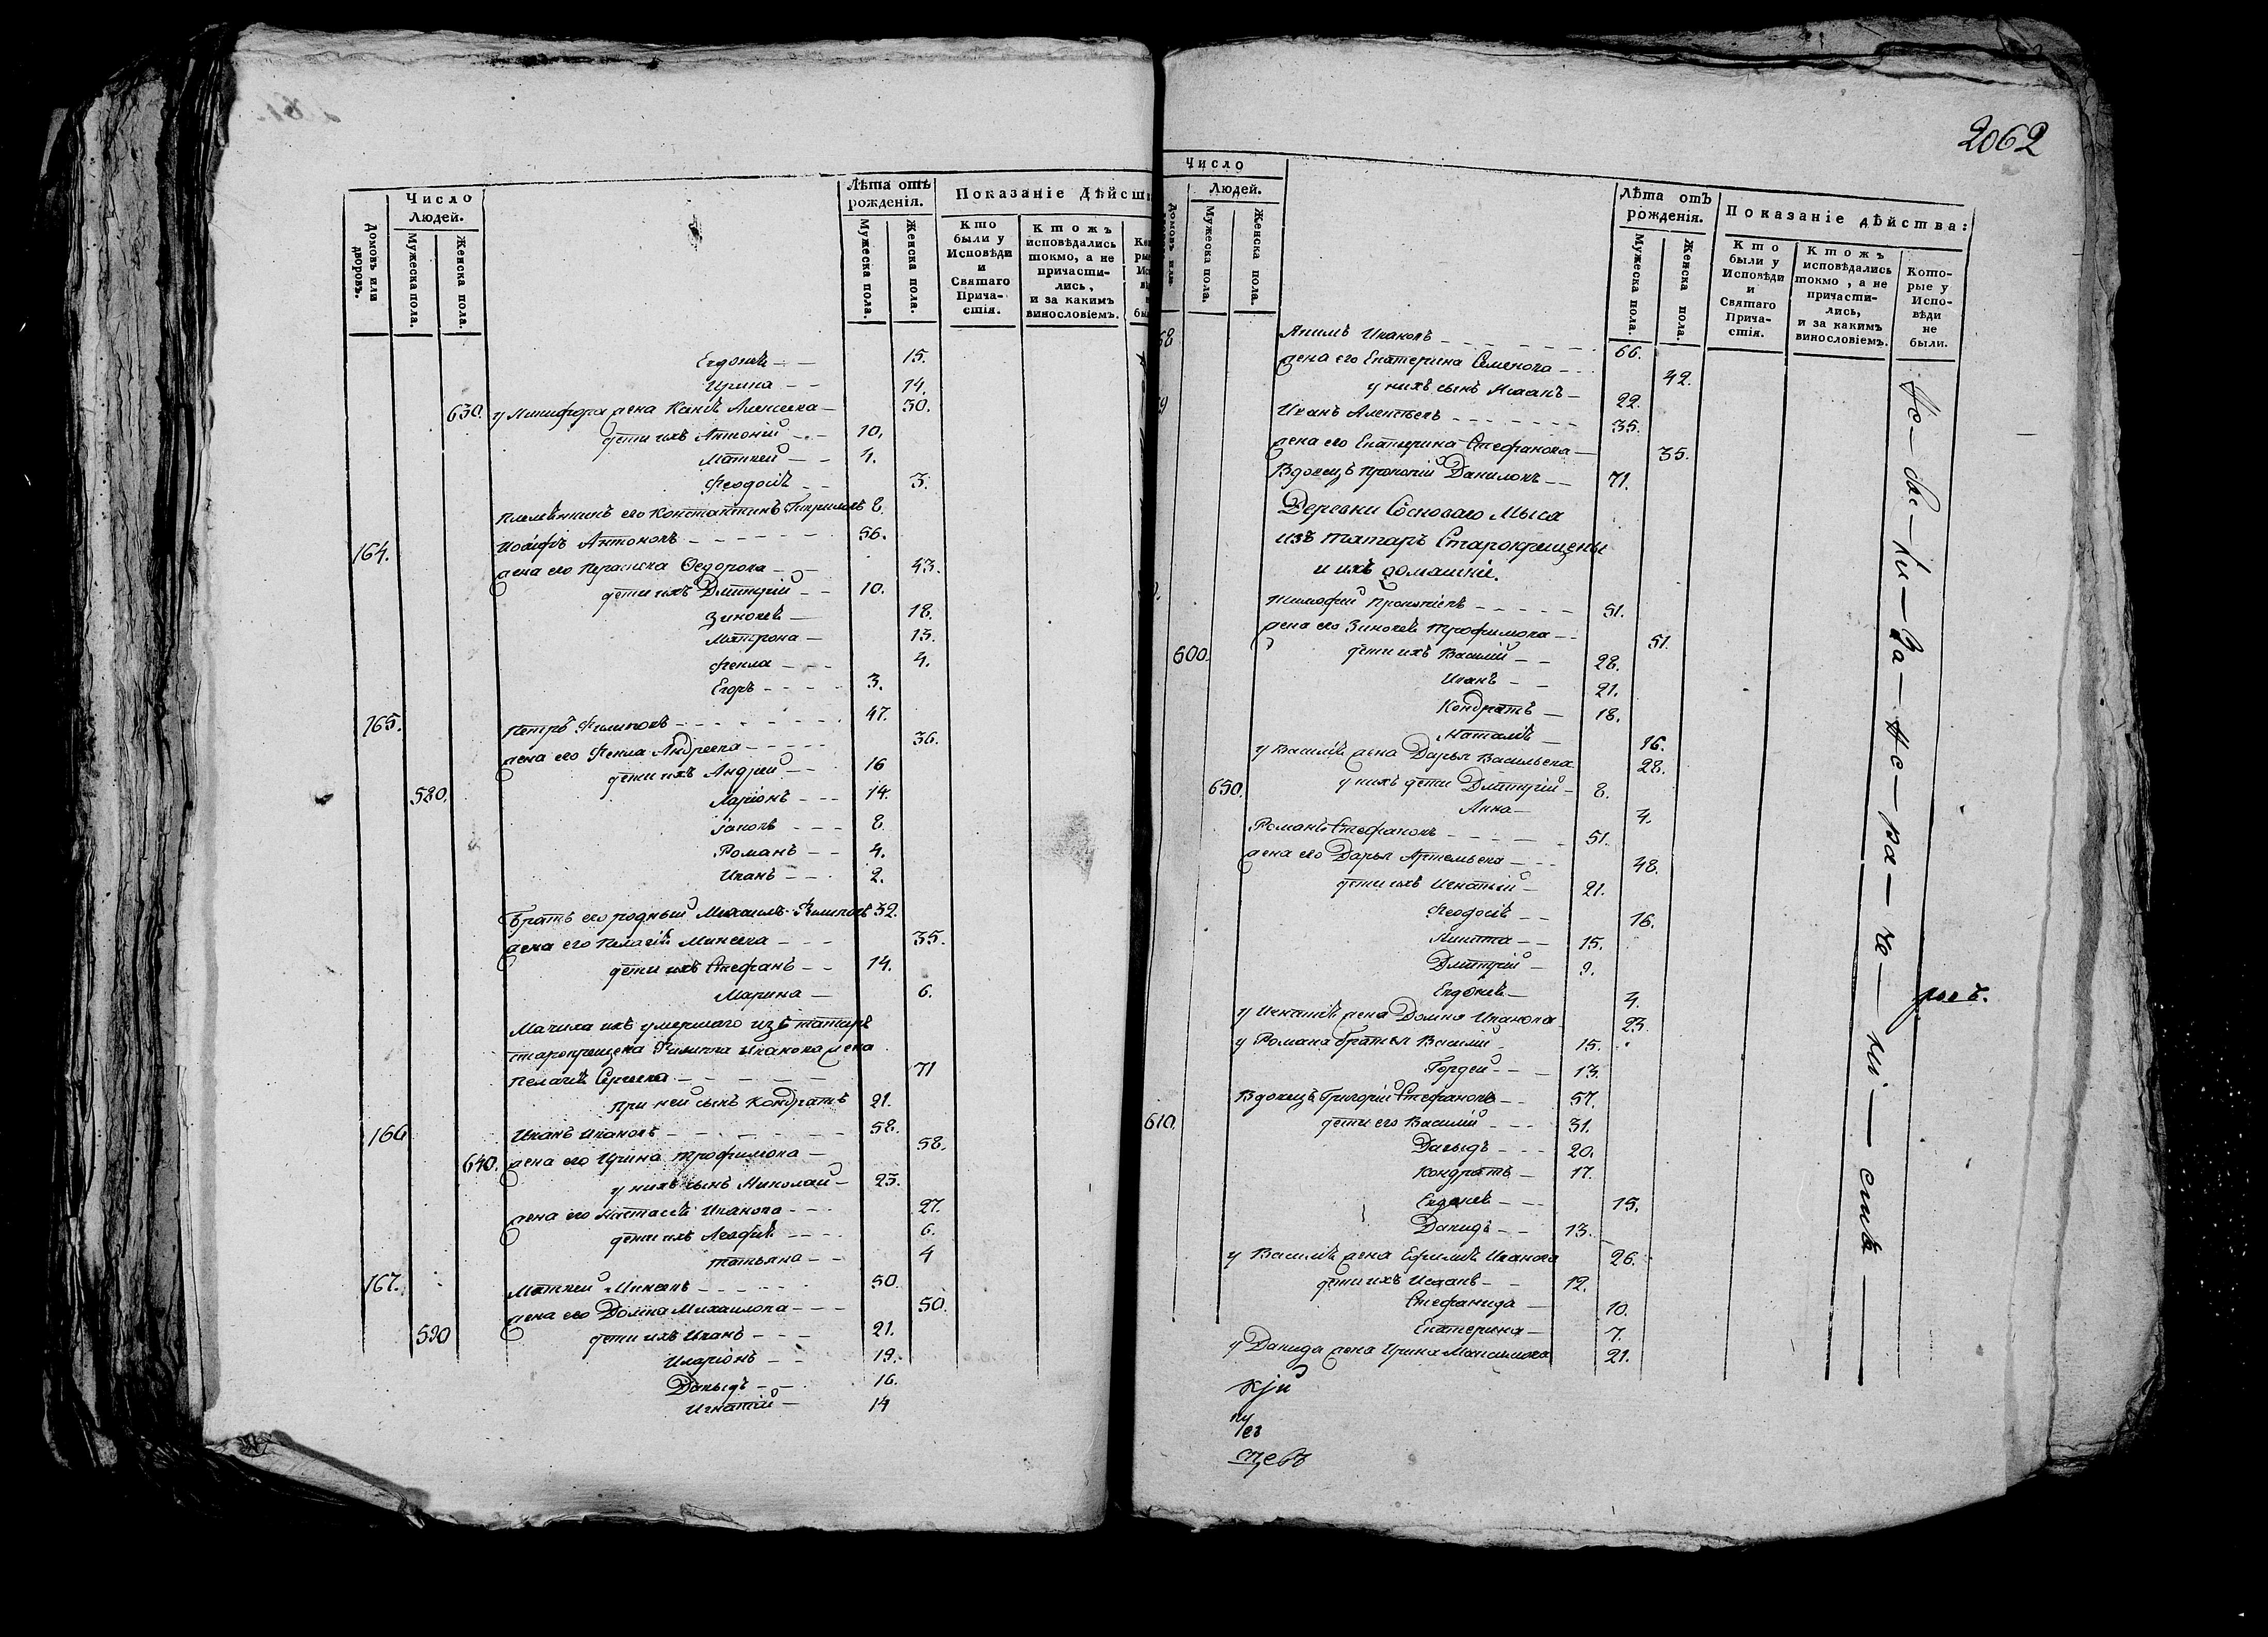 Число
Людей.
Домовъ или дворовъ.
Мужеска пола.
Женска пола.
Лѣта отъ рожденія.
Мужеска пола.
Женска пола.
Показаніе Дѣйст
Кто были у Исповѣди и Святаго Прича-стія.
Ктожъ исповѣдались токмо, а не причасти-лись, и за какимъ винословіемъ.
Евдокія 15.
Ирина 14.
630. у Никифора жена Алексеева 30.
дети ихъ Антоній 10.
Матвей 4.
Феодосія 3.
племянникъ его Константинъ 8.
164. Иосифъ Антоновъ 56.
жена его Параскева Федорова 43.
дети ихъ Дмитрій 10.
Зиновія 18.
Матрона 13.
Фекла 4.
Егоръ 3.
165. Петръ Филиповъ 47.
жена его Фекла Андреева 36.
дети ихъ Андрей 16
580. Ларіонъ 14.
Іаковъ 8.
Романъ 4.
Иванъ 2.
братъ его родный Михаилъ Филиповъ 32.
жена его Пелагія Минеева 35.
дети ихъ Стефанъ 14.
Марина 6.
Мачиха ихъ умершаго изъ татаръ
старокрещена Филиппа Иванова жена
Пелагія Сергеева 71
при ней сынъ Кондратъ 21.
166 Иванъ Ивановъ 58.
640. жена его Ирина Трофимова 58.
у нихъ сынъ Николай 23.
жена его Настасія Иванова 27.
дети ихъ Агафія 6.
Татьяна 4
167. Матвей Минеевъ 50
жена его Домна Михаилова 50.
590 дети ихъ Иванъ 21.
Иларіонъ 19.
Давыдъ 16.
Игнатій 14
2062
Число
Людей.
Домовъ или
Мужеска пола.
Женска пола.
Лѣта отъ рожденія.
Мужеска пола.
Женска пола.
Показаніе дѣйства:
Кто были у Исповѣди и Святаго Прича-стія.
Ктожъ исповѣдались токмо, а не причасти-лись, и за какимъ винословіемъ.
Кото-рые у Испо-вѣди не были.
68 Акимъ Ивановъ 66.
жена его Екатерина Семенова 42.
у нихъ сынъ 22.
69 Иванъ Алексѣевъ 35.
жена его Екатерина Стефанова 35.
Вдовецъ Прокопій Даниловъ 71.
Деревни Сосноваго Мыса
изъ татаръ Старокрещены
и ихъ домашніе.
Тимофей Прокопіевъ 51.
жена его Зиновія Трофимова 51.
600. дети ихъ Василій 28.
Иванъ 21.
Кондратъ 18.
Наталія 16.
у Василія жена Дарья Васильева 28.
650. у нихъ дети Дмитрій 8.
Анна 4.
Романъ Стефановъ 51.
жена его Дарья Артемьева 48.
дети ихъ Игнатій 21.
Феодосія 16.
Никита 15.
Дмитрій 9.
Евдокія 4.
у Игнатія жена Домна Иванова 23.
у Романа братья Василій 15.
Гордей 13.
Вдовецъ Григорій Стефановъ 57.
610. дети его Василій 31.
Давыдъ 20.
Кондратъ 17.
Евдокія 15.
Давидъ 13.
у Василія жена Ефимія Иванова 26.
дети ихъ 12.
Стефанида 10.
Екатерина 7.
у Давида жена Ирина Максимова 21.